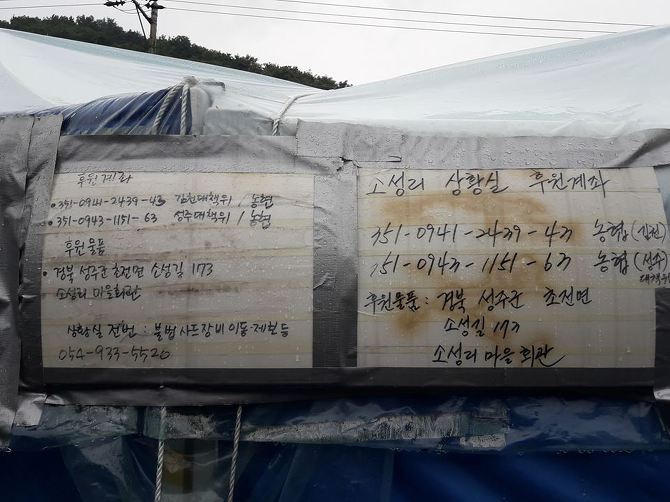 후원계좌
• 351-0941-2439-43 김천대책위 / 농협
• 351-0943-1151-63 성주대책위 / 농협
후원물품
• 경북 성주군 초전면 소성길 173
소성리 마을회관
상황실 전번 : 불법사드장비 이동·제보 등
054-933-5520
소성리 상황실 후원계좌
351-0941-2439-43 농협 (김천)
351-0943-1151-63 농협 (성주
대책위)
후원물품 : 경북 성주군 초전면
소성길 173
소성리 마을 회관